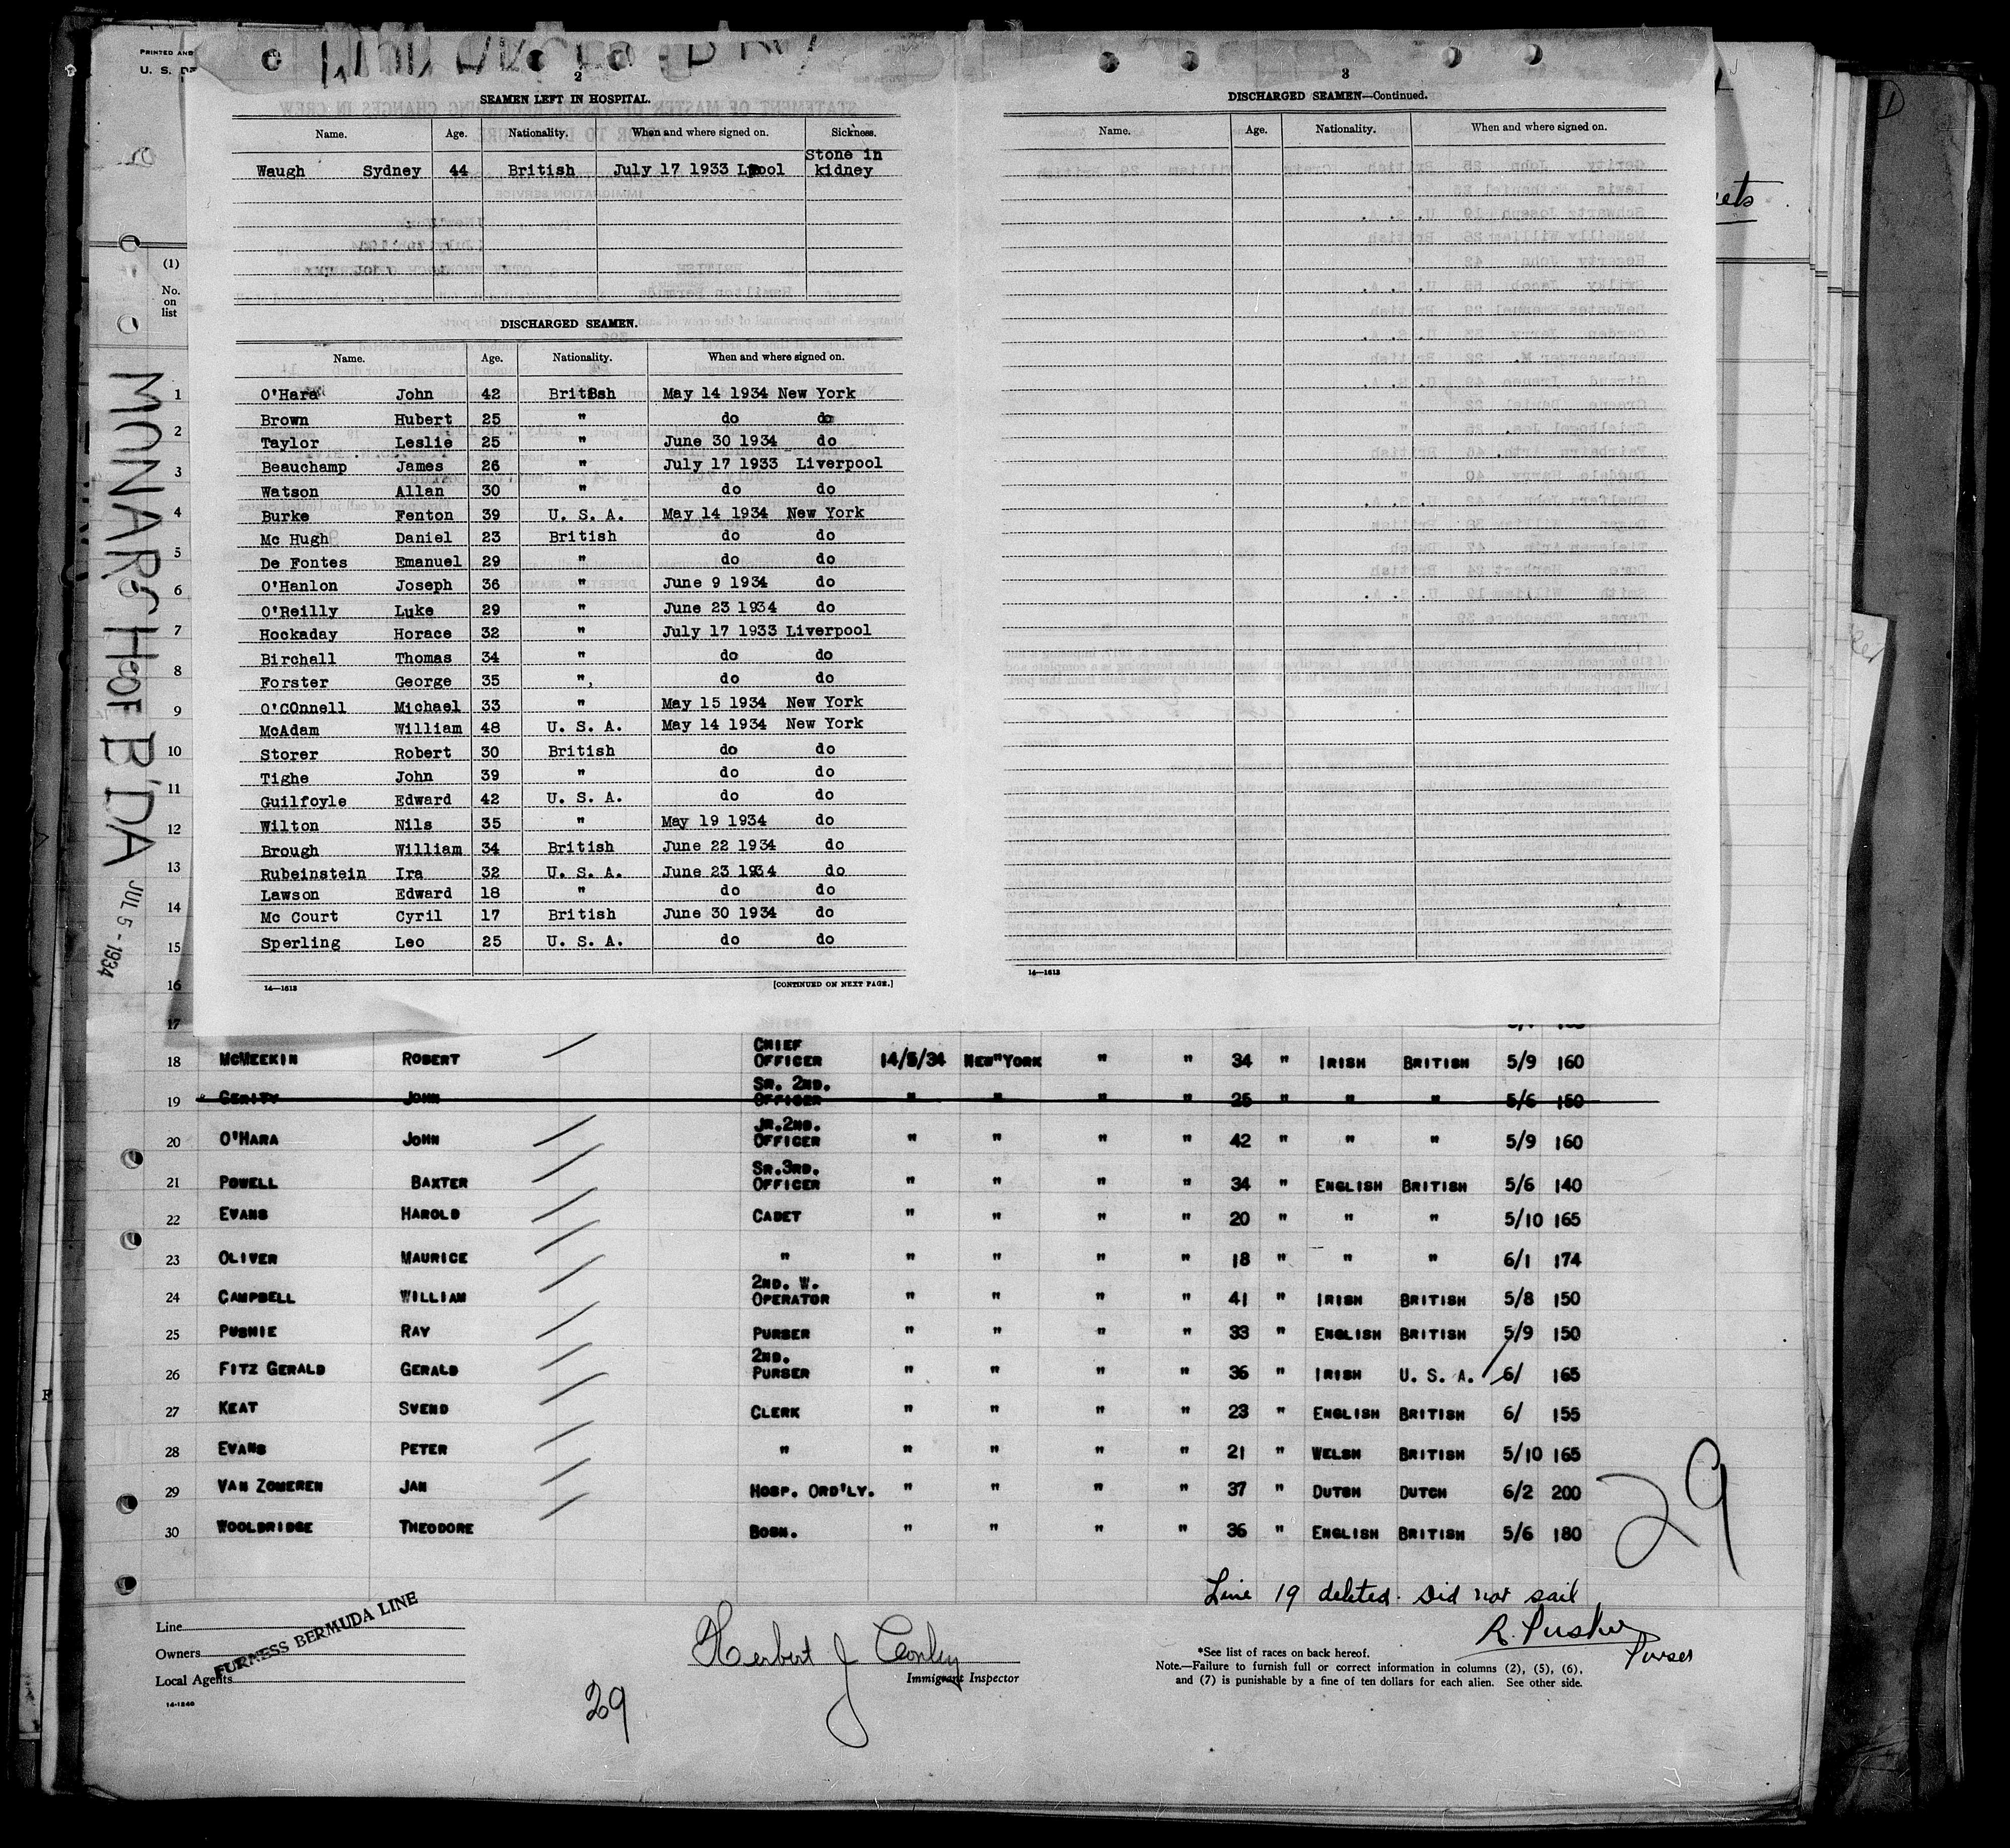 PRINTED AND
U. S. DE
2
SEAMEN LEFT IN HOSPITAL.
Name. Age. Nationality. When and where signed on. Sickness.
Waugh Sydney 44 British July 17 1933 Lpool Stone in kidney
DISCHARGED SEAMEN.
Name. Age. Nationality. When and where signed on.
O'Hara John 42 British May 14 1934 New York
Brown Hubert 25 " do do
Taylor Leslie 25 " June 30 1934 do
Beauchamp James 26 " July 17 1933 Liverpool
Watson Allan 30 " do do
Burke Fenton 39 U. S. A. May 14 1934 New York
Mc Hugh Daniel 23 British do do
De Fontes Emanuel 29 " do do
O'Hanlon Joseph 36 " June 9 1934 do
O'Reilly Luke 29 " June 23 1934 do
Hockaday Horace 32 " July 17 1933 Liverpool
Birchall Thomas 34 " do do
Forster George 35 ", do do
O'COnnell Michael 33 " May 15 1934 New York
McAdam William 48 U. S. A. May 14 1934 New York
Storer Robert 30 British do do
Tighe John 39 " do do
Guilfoyle Edward 42 U. S. A. do do
Wilton Nils 35 " May 19 1934 do
Brough William 34 British June 22 1934 do
Rubeinstein Ira 32 U. S. A. June 23 1934 do
Lawson Edward 18 " do do
Mc Court Cyril 17 British June 30 1934 do
Sperling Leo 25 U. S. A. do do
14—1613
[CONTINUED ON NEXT PAGE.]
3
DISCHARGED SEAMEN—Continued.
Name. Age. Nationality. When and where signed on.
14—1613
(1)
No.
on
list
1
2
3
4
5
6
7
8
9
10
11
12
13
14
15
16
17
MONARCH OF B'DA JUL 5 - 1934
18 McMEEKIN ROBERT CHIEF OFFICER 14/5/34 NEW"YORK " " 34 " IRISH BRITISH 5/9 160
19 GERITY JOHN SR. 2ND. OFFICER " " " " 25 " " " 5/6 150
20 O'HARA JOHN JR.2ND. OFFICER " " " " 42 " " " 5/9 160
21 POWELL BAXTER SR.3RD. OFFICER " " " " 34 " ENGLISH BRITISH 5/6 140
22 EVANS HAROLD CADET " " " " 20 " " " 5/10 165
23 OLIVER MAURICE " " " " " 18 " " " 6/1 174
24 CAMPBELL WILLIAM 2ND. W. OPERATOR " " " " 41 " IRISH BRITISH 5/8 150
25 PUSHIE RAY PURSER " " " " 33 " ENGLISH BRITISH 5/9 150
26 FITZ GERALD GERALD 2ND. PURSER " " " " 36 " IRISH U. S. A. 6/ 165
27 KEAT SVEND CLERK " " " " 23 " ENGLISH BRITISH 6/ 155
28 EVANS PETER " " " " " 21 " WELSH BRITISH 5/10 165
29 VAN ZOMEREN JAN HOSP. ORD'LY. " " " " 37 " DUTCH DUTCH 6/2 200
30 WOOLDRIDGE THEODORE BOSN. " " " " 36 " ENGLISH BRITISH 5/6 180
29
Line 19 deleted. Did not sail
R. Pushie
Purser
Line
Owners
Local Agents
FURNESS BERMUDA LINE
14-1240
29
Herbert J Conley
Immigrant Inspector
*See list of races on back hereof.
Note.—Failure to furnish full or correct information in columns (2), (5), (6),
and (7) is punishable by a fine of ten dollars for each alien. See other side.